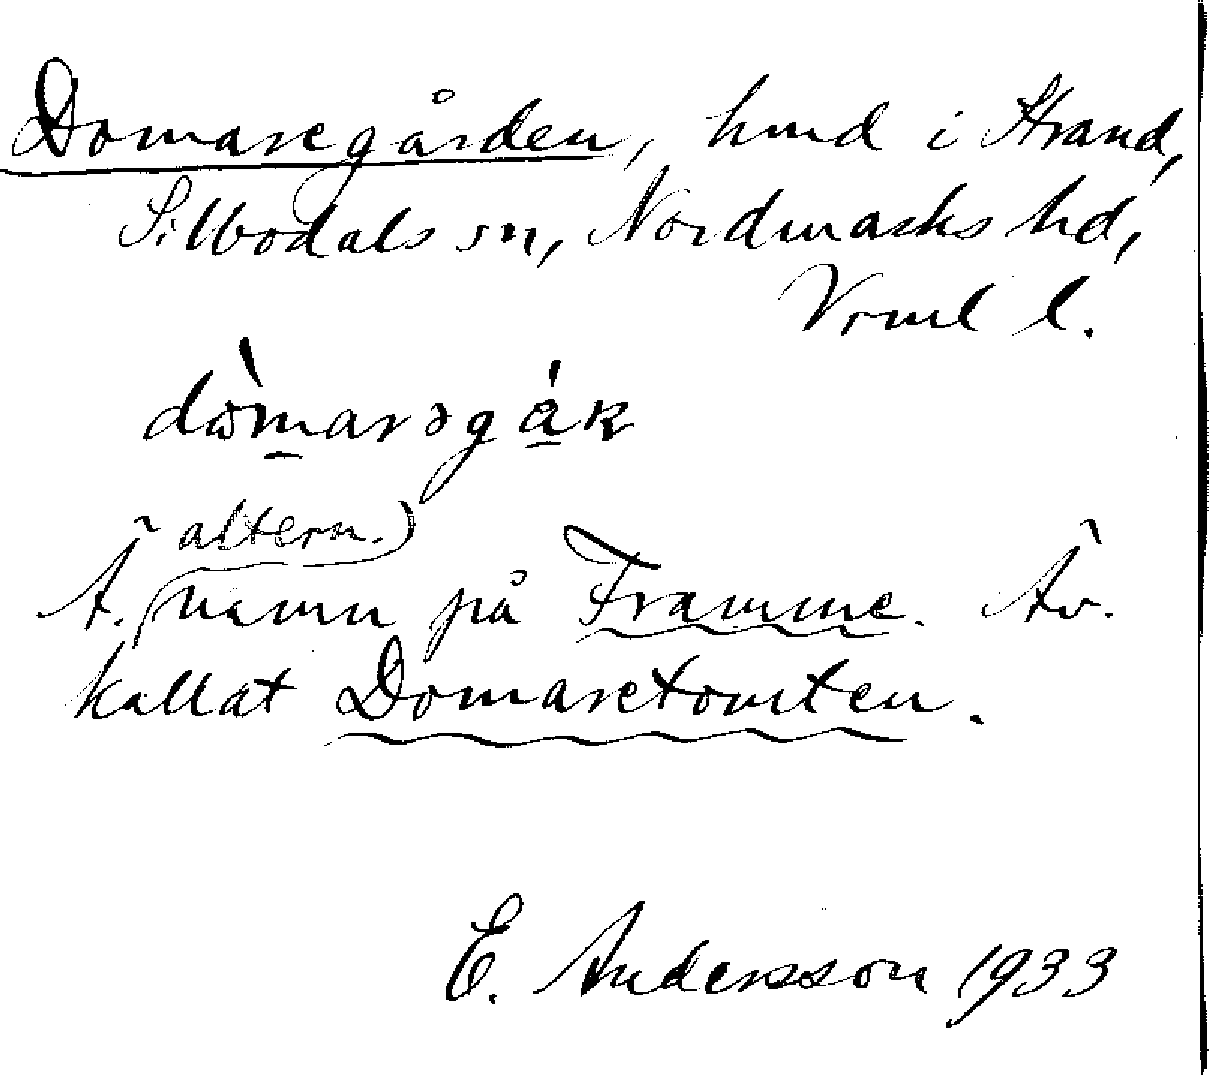 Domaregården, hmd i Strand,
Silbodals sn, Nordmarks hd,
Vrml l.
dòmarəgák
Ä. (altern.)
namn på Framme. Äv.
kallat Domaretomten.
E. Andersson 1933